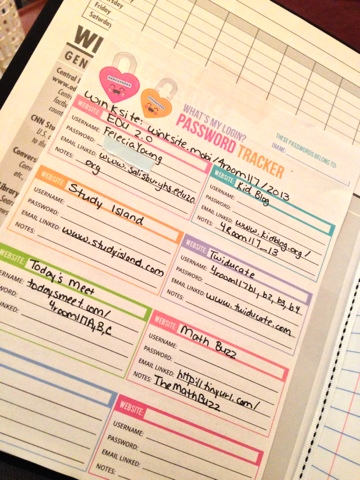 Friday
Saturday
WI
GEN
WHAT'S MY LOGIN?
PASSWORD TRACKER
THESE PASSWORDS BELONG TO:
NAME:
winksite: winksite.mobi/4room117/2013
WEBSITE: EDU 2.0
USERNAME: FeleciaYoung
PASSWORD:
EMAIL LINKED: www.salisbury.edu20.
NOTES: org
WEBSITE: Kid Blog
USERNAME:
PASSWORD:
EMAIL LINKED: www.kidblog.org/
NOTES: 4Room117_13
WEBSITE: Study Island
USERNAME:
PASSWORD:
EMAIL LINKED: www.studyisland.com
NOTES:
WEBSITE: Twiducate
USERNAME: 4room117b1, b2, b3, b4
PASSWORD:
EMAIL LINKED: www.twiducate.com
NOTES:
WEBSITE: Today's Meet
USERNAME: todaysmeet.com/
4room117A,B,C
WEBSITE: Math Buzz
USERNAME:
PASSWORD:
EMAIL LINKED: http://tinyurl.com/
NOTES: TheMathBuzz
WEBSITE:
USERNAME:
PASSWORD:
EMAIL LINKED:
NOTES: